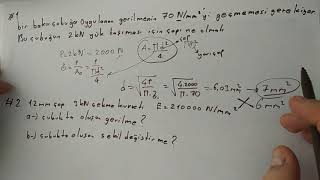 #1
bir bakır çubuğa uygulanan gerilmenin 70 N/mm²'yi geçmemesi gerekiyor.
Bu çubuğun 2kN yük taşıması için çap ne olmalı
P=2kN=2000N
A=πd²/4
çap
yarıçap
σ=P/A₀=P/(πd²/4)
d=√(4P/π.σ)=√(4.2000/π.70)=6,03mm→7mm²
6mm²
#2 12mm çap 3kN çekme kuvveti E=210000 N/mm²
a-) çubukta oluşan gerilme?
b-) çubukta oluşan şekil değiştirme?